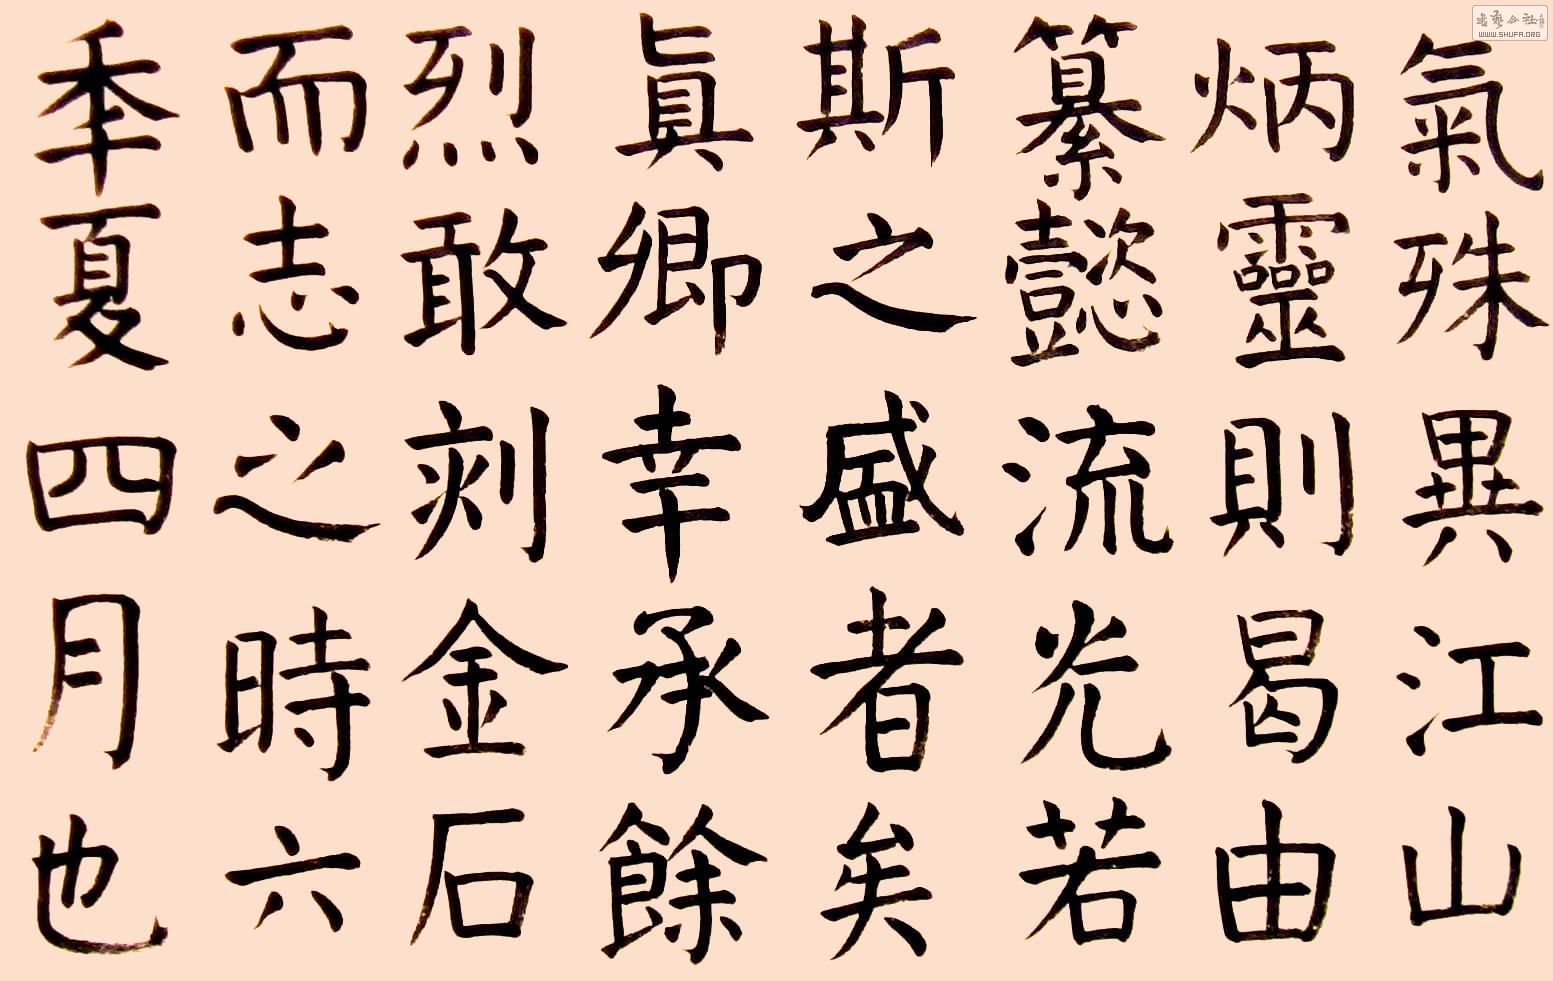 氣殊異江山
炳靈則曷由
纂懿流光若
斯之盛者矣
眞卿幸承餘
烈敢刻金石
而志之時六
季夏四月也
WWW.SHUFA.ORG